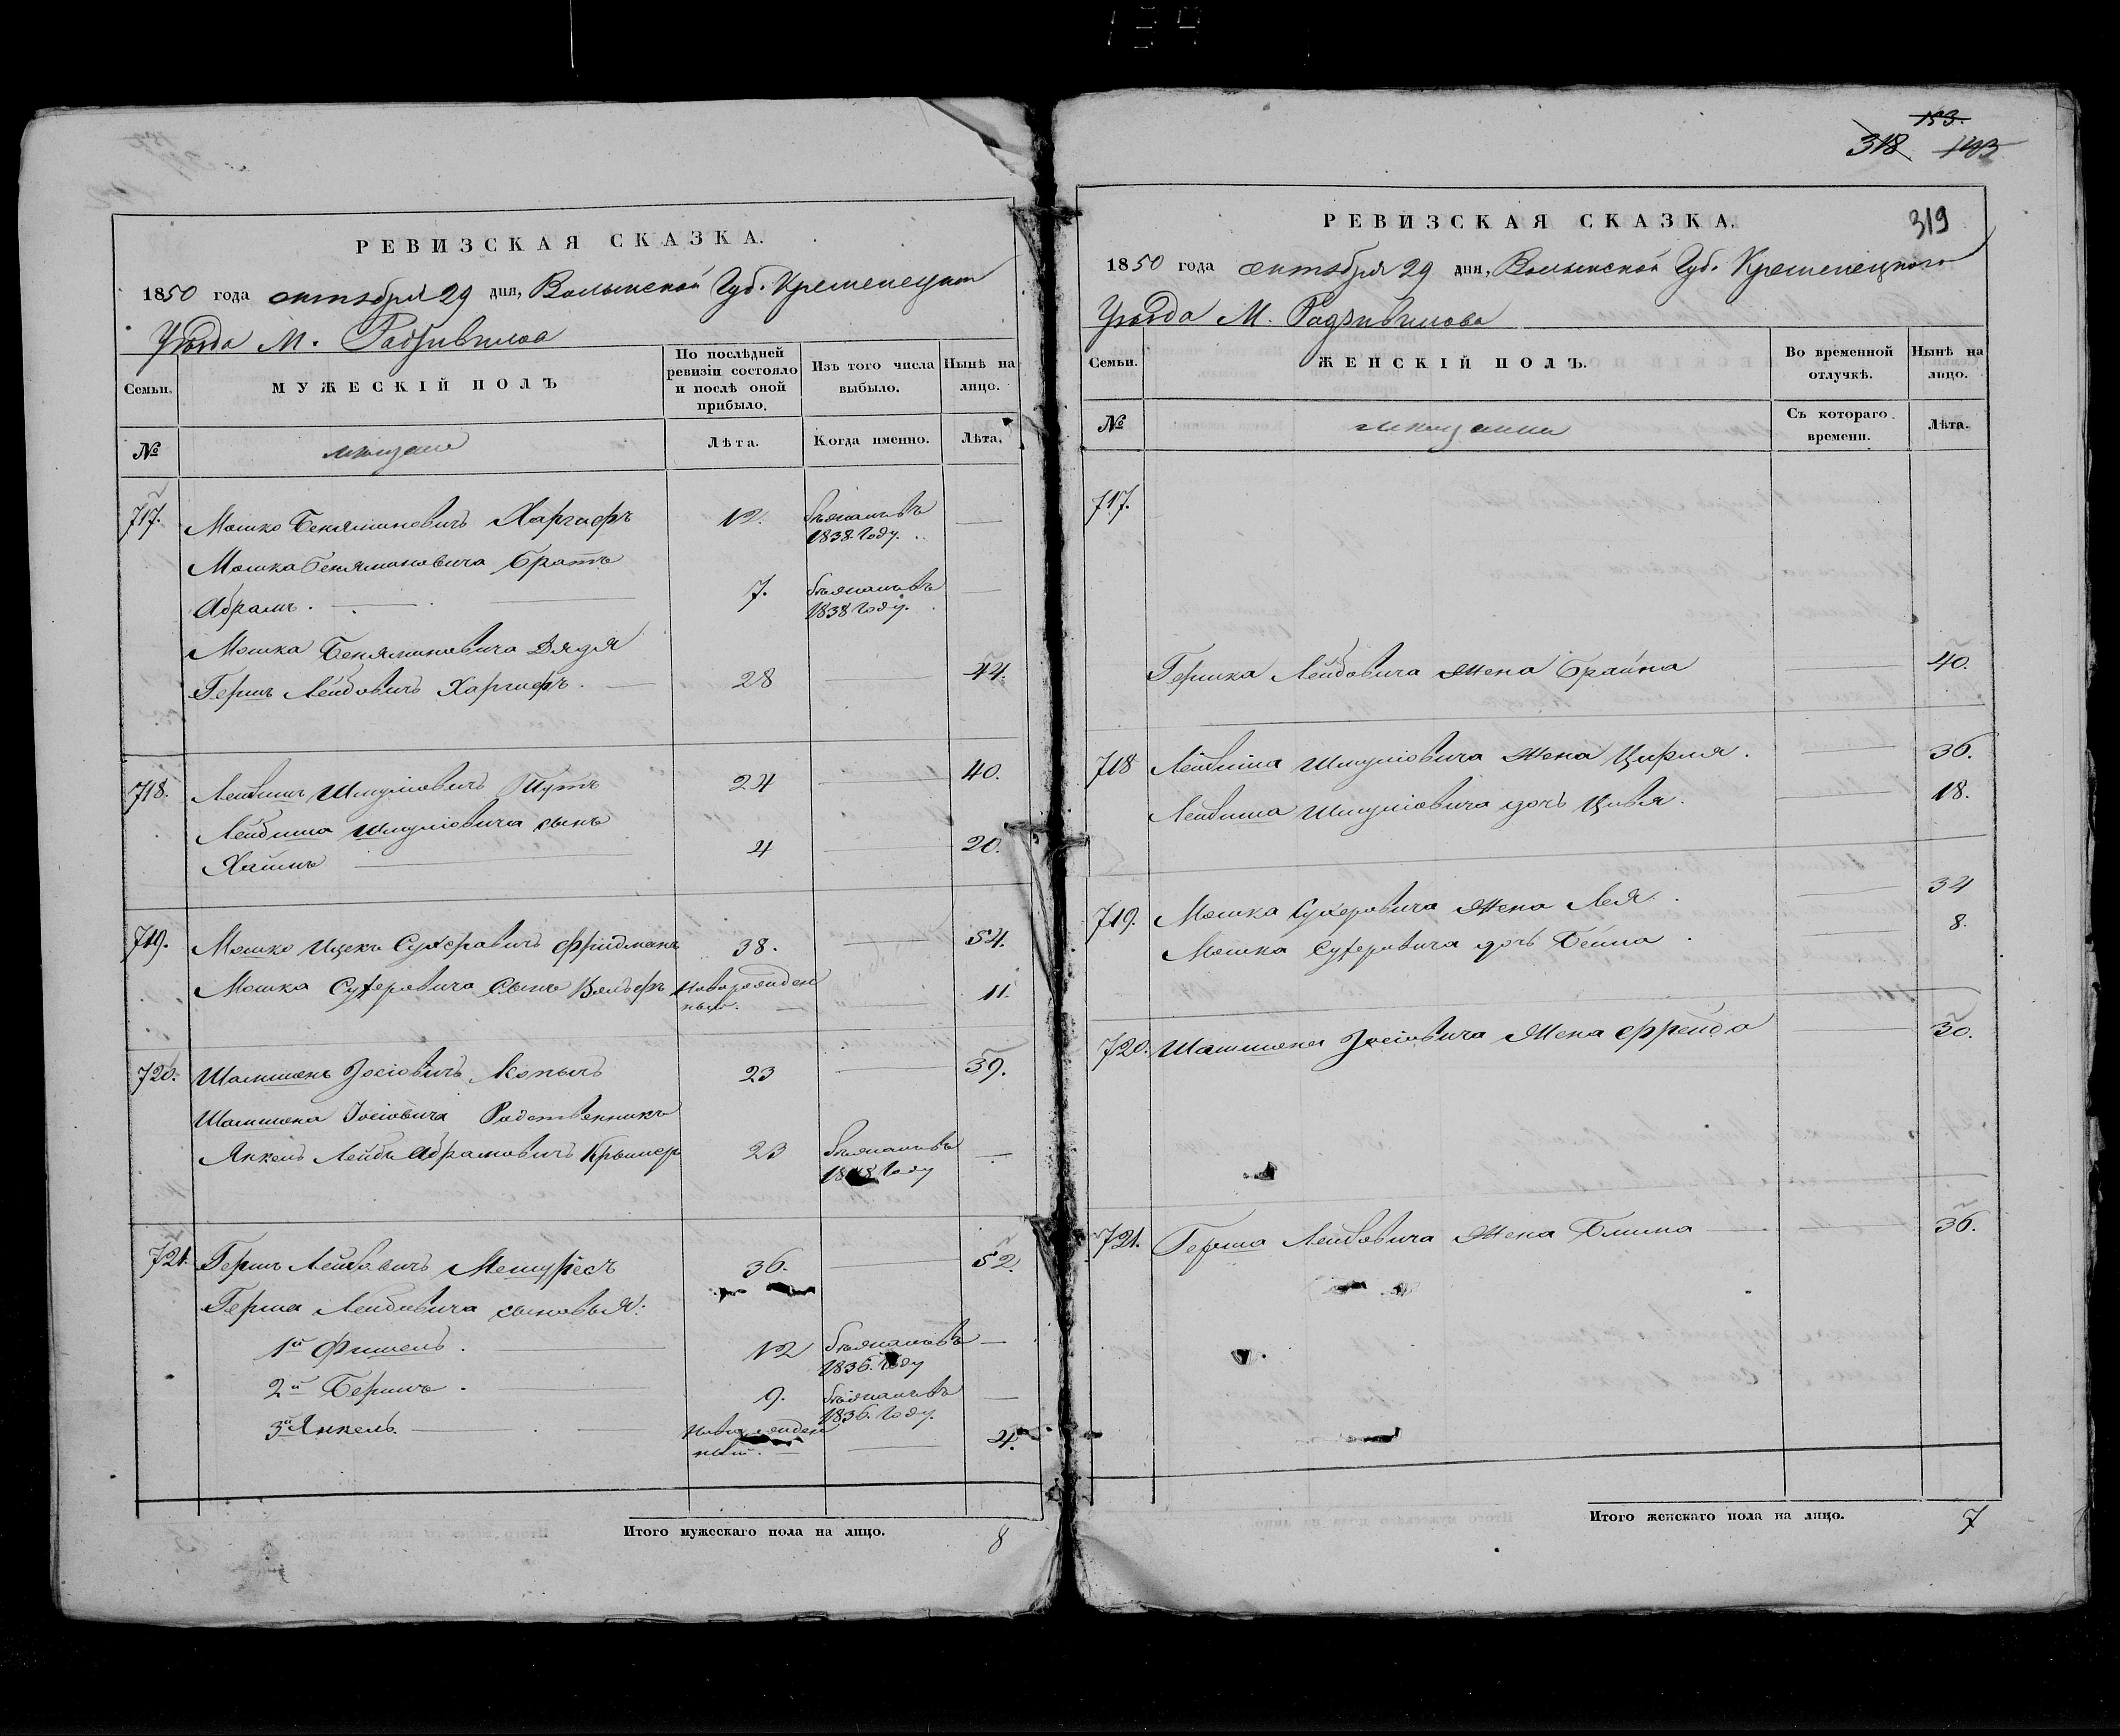 РЕВИЗСКАЯ СКАЗКА.
1850 года октября 29 дня, Волынской Губ. Кременецкого
Уѣзда М. Радзивилова
Семьи.
МУЖЕСКІЙ ПОЛЪ
По послѣдней ревизіи состояло и послѣ оной прибыло.
Изъ того числа выбыло.
Нынѣ на лицо.
№
мещане
Лѣта.
Когда именно.
Лѣта.
717.
Мошко Беняминовичъ
12.
1838 Году.
—
Мошка Беняминовича Братъ
Абрамъ.
7.
1838 Году.
—
Мошка Беняминовича Дядя
Гершъ Лейбовичъ
28
—
44.
718.
Лейбишъ Шмуліовичъ Шутъ
24
—
40.
Лейбиша Шмуліовича сынъ
Хаимъ
4
—
20.
719.
Мошко Ицекъ Сухеровичъ Фридманъ
38.
—
54.
Мошка Сухеровича Сынъ Вольфъ
Новорожден
ный.
—
11.
720.
Шамшонъ Іосіовичъ Копычъ
23
—
39.
Шамшона Іосіовича Родственникъ
Янкель Лейбъ Абрамовичъ
23
Году
—
721.
Гершъ Лейбовичъ
36.
—
52.
Герша Лейбовича сыновья:
1й Фишель.
12
1836. Году
—
2й Бершъ.
9.
1836. Году.
—
3й Янкель.
Новорожден
ный.
—
4.
Итого мужескаго пола на лицо.
8
153.
318 143
319
РЕВИЗСКАЯ СКАЗКА.
1850 года октября 29 дня, Волынской Губ. Кременецкого
Уѣзда М. Радзивилова
Семьи.
ЖЕНСКІЙ ПОЛЪ.
Во временной отлучкѣ.
Нынѣ на лицо.
№
мещанки
Съ котораго времени.
Лѣта.
717.
Гершка Лейбовича Жена Брайна
—
40.
718
Лейбиша Шмуліовича Жена Цирля.
—
36.
Лейбиша Шмуліовича дочь Цивя.
—
18.
719.
Мошка Сухеровича Жена Лея.
—
34
Мошка Сухеровича дочь Бейла.
—
8.
720.
Шамшона Іосіовича Жена Фрейда
—
30.
721.
Герша Лейбовича Жена Блима
—
36.
Итого женскаго пола на лицо.
7